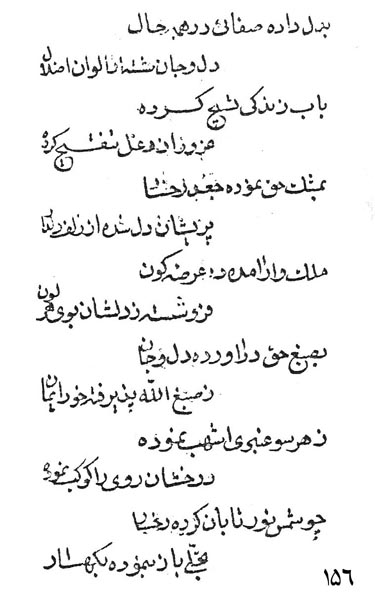 بدل داده صفائ در همه حال
دل و جان شسته از الوان اضلال
باب زندگی تشیح کرده
فروزان تفتیح کرده
بمشک حق نموده جعد رخشا
پریشان دل شده از زلف
ملک وار آمده در عرصه کون
فروشسته ز دلشان بوی هر لون
بصبغ حق در آورده دل و جان
ز صبغ الله پذیرفته خور ایمان
ز هر سو عنبری اشهب نموده
درخشان روی را کوکب نموده
چو شمس نور تابان کرده رخسار
تجلی بان نموده بکهسار
۱۵۶